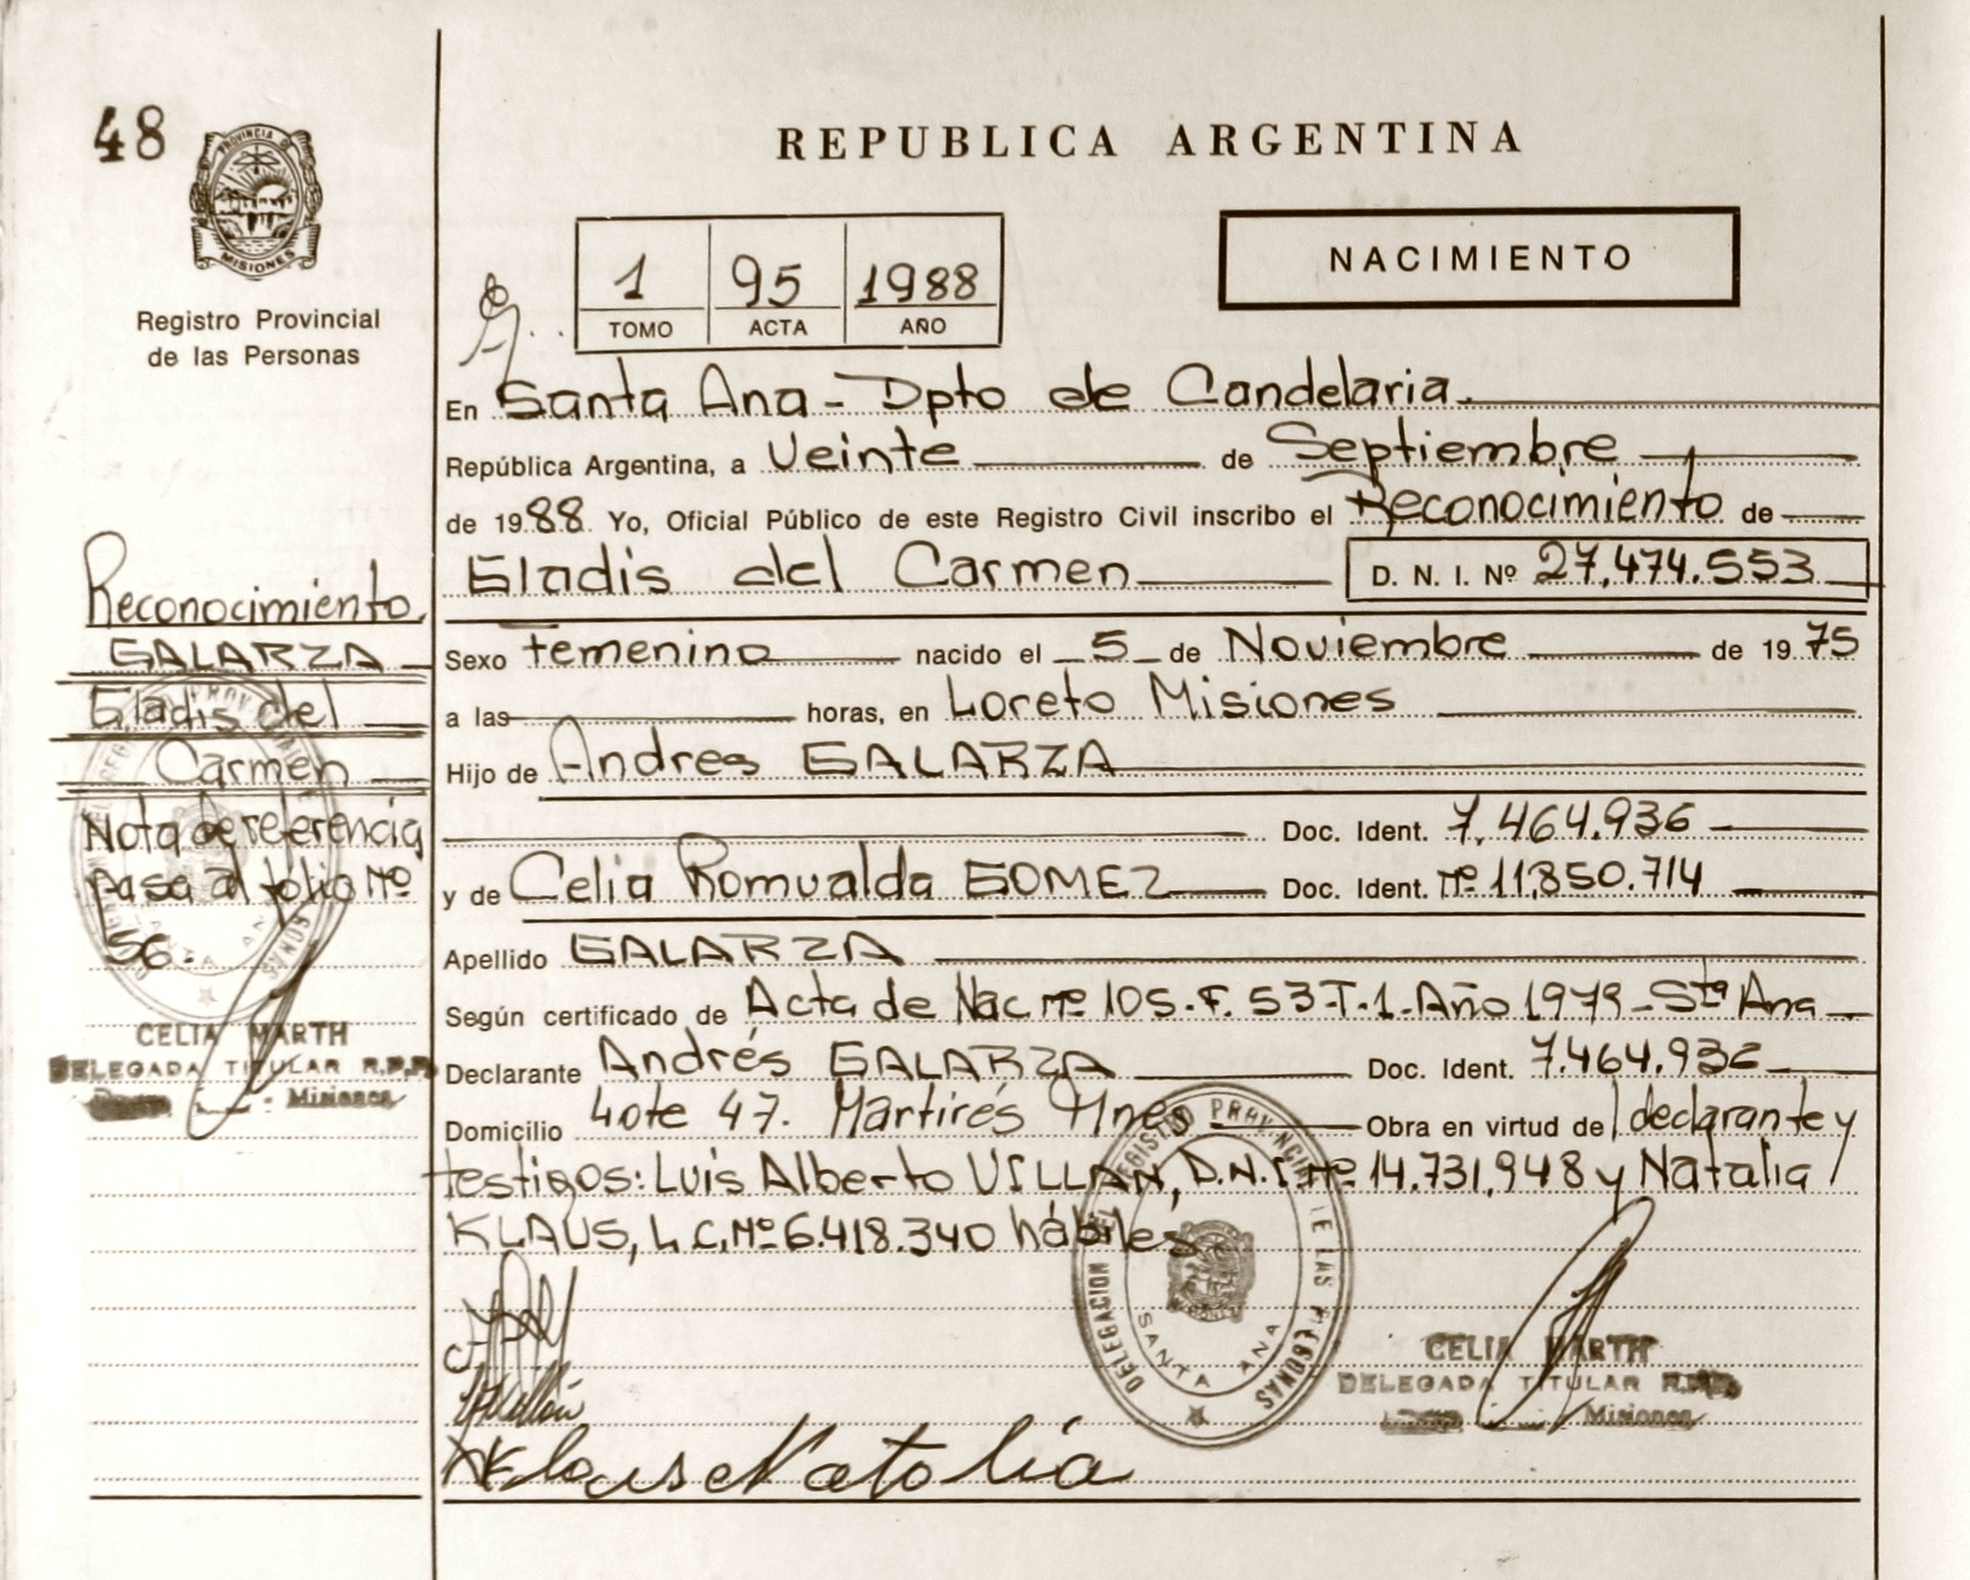 48
PROVINCIA D
MISIONES
Registro Provincial
de las Personas
REPUBLICA ARGENTINA
1 95 1988
TOMO ACTA AÑO
NACIMIENTO
En Santa Ana - Dpto de Candelaria.
República Argentina, a Veinte de Septiembre
de 1988 Yo, Oficial Público de este Registro Civil inscribo el Reconocimiento de
Gladis del Carmen D. N. I. Nº 27.474.553
Sexo femenino nacido el 5 de Noviembre de 1975
a las horas, en Loreto Misiones
Hijo de Andres GALARZA
Doc. Ident. 7.464.936
y de Celia Romualda GOMEZ Doc. Ident. Nº 11.850.714
Apellido GALARZA
Según certificado de Acta de Nac Nº 105-F. 53-T-1-Año 1979-Sta Ana
Declarante Andrés GALARZA Doc. Ident. 7.464.936
Domicilio Lote 47. Martirés Mnes Obra en virtud de declarante y
testigos: Luis Alberto VILLAN, D.N.I Nº 14.731.948 y Natalia
KLAUS, L.C.Nº 6.418.340 hábiles
Reconocimiento.
GALARZA
Gladis del
Carmen
Nota de referencia
pasa al folio Nº
56.
CELIA MARTH
DELEGADA TITULAR R.P.P.
Misiones
DELEGACION DEL REGISTRO PROVINCIAL DE LAS PERSONAS
SANTA ANA
CELIA MARTH
DELEGADA TITULAR
Misiones
Klaus Natolia